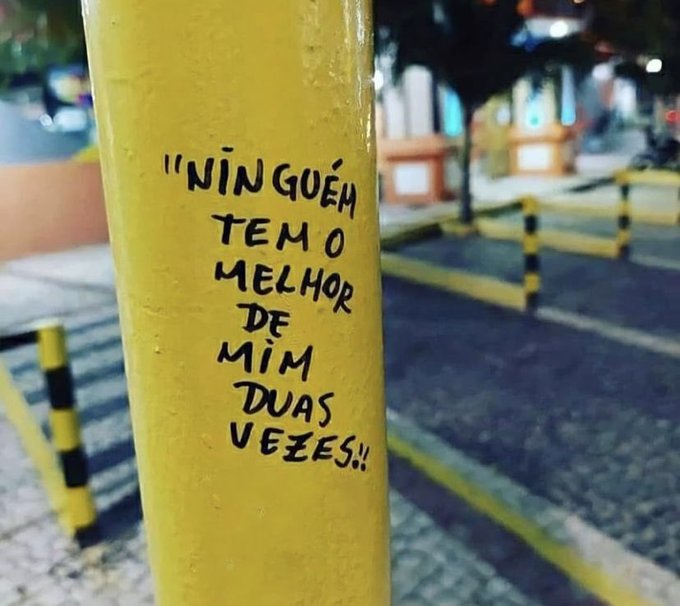 "NINGUÉM
TEM O
MELHOR
DE
MIM
DUAS
VEZES!!